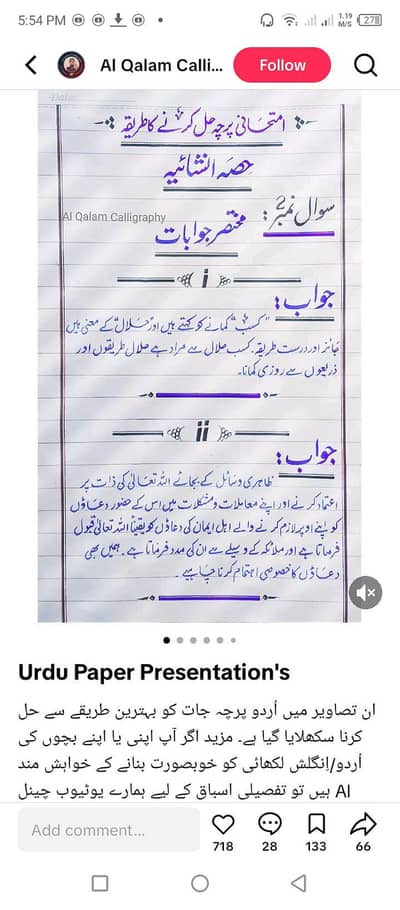 5:54 PM
1.19 M/S
27
Al Qalam Calli...
Follow
امتحانی پرچہ حل کرنے کا طریقہ
حصہ انشائیہ
Al Qalam Calligraphy
سوال نمبر 2:
مختصر جوابات
i
جواب:
"کسب" کمانے کو کہتے ہیں اور "حلال" کے معنی ہیں
جائز اور درست طریقہ۔ کسب حلال سے مراد ہے حلال طریقوں اور
ذریعوں سے روزی کمانا۔
ii
جواب:
ظاہری وسائل کے بجائے اللہ تعالیٰ کی ذات پر
اعتماد کرنے اور اپنے معاملات و مشکلات میں اس کے حضور دعاؤں
کو اپنے اوپر لازم کرنے والے اہل ایمان کی دعاؤں کو یقیناً اللہ تعالیٰ قبول
فرماتا ہے اور ملائکہ کے وسیلے سے ان کی مدد فرماتا ہے۔ ہمیں بھی
دعاؤں کا خصوصی اہتمام کرنا چاہیے۔
Urdu Paper Presentation's
ان تصاویر میں اُردو پرچہ جات کو بہترین طریقے سے حل
کرنا سکھلایا گیا ہے۔ مزید اگر آپ اپنی یا اپنے بچوں کی
اُردو/اِنگلش لکھائی کو خوبصورت بنانے کے خواہش مند
ہیں تو تفصیلی اسباق کے لیے ہمارے یوٹیوب چینل Al
Add comment...
718
28
133
66